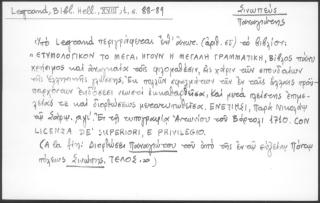 Legrand, Bibl. Hell. XVIIIe, t. , σ. 88-89
Σινωπεὺς
Παναγιώτης
Ὑπὸ Legrand περιγράφεται (ἀρ. 65) τὸ βιβλίον:
«ΕΤΥΜΟΛΟΓΙΚΟΝ ΤΟ ΜΕΓΑ, ΗΤΟΥΝ Η ΜΕΓΑΛΗ ΓΡΑΜΜΑΤΙΚΗ, Βίβλος πάνυ
χρήσιμος καὶ ἀναγκαία τοῖς φιλομαθέσιν, εἰς χάριν τῶν σπουδαίων
τῆς ἑλληνικῆς γλώσσης, Ἐκ πολλῶν
ἐκδοθεῖσα νεωστὶ καὶ μετὰ πλείστης ἐπιμε-
λείας τε καὶ διορθώσεως μετατυπωθεῖσα. ΕΝΕΤΙΗΣΙ, Παρὰ Νικολάῳ
τῷ Σάρῳ. ͵αψι΄. Ἐκ τῆς τυπογραφίας Ἀντωνίου τοῦ Βόρτολι 1710. CON
LICENZA DE' SUPERIORI, E PRIVILEGIO.
(A la fin: Διορθώσει Παναγιώτου τοῦ ἀπὸ τῆς ἐν τῷ εὐξείνῳ Πόντῳ
πόλεως Σινώπης, ΤΕΛΟΣ.»)